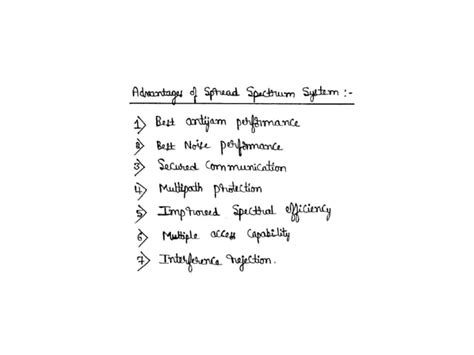 Advantages of Spread Spectrum System :-
1) Best antijam performance
2) Best Noise performance
3) Secured Communication
4) Multipath protection
5) Improved Spectral efficiency
6) Multiple access Capability
7) Interference rejection.